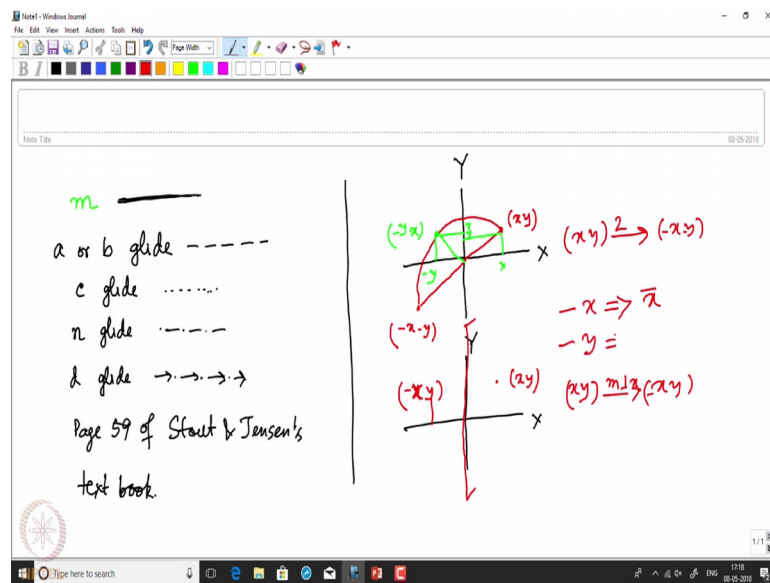 Note1 - Windows Journal
File Edit View Insert Actions Tools Help
Page Width
B I
Note Title
08-05-2018
m
a or b glide -----
c glide .......
n glide .-.-.-
d glide →.→.→.→
Page 59 of Stout & Jensen's
text book.
Y
(-y x)
3
(xy)
-y
x
X
(-x-y)
(xy) 2→ (-xy)
-x => x̄
-y =
Y
(-xy)
. (xy)
X
(xy) m⊥x→ (-xy)
1/1
Type here to search
ENG
17:18
08-05-2018